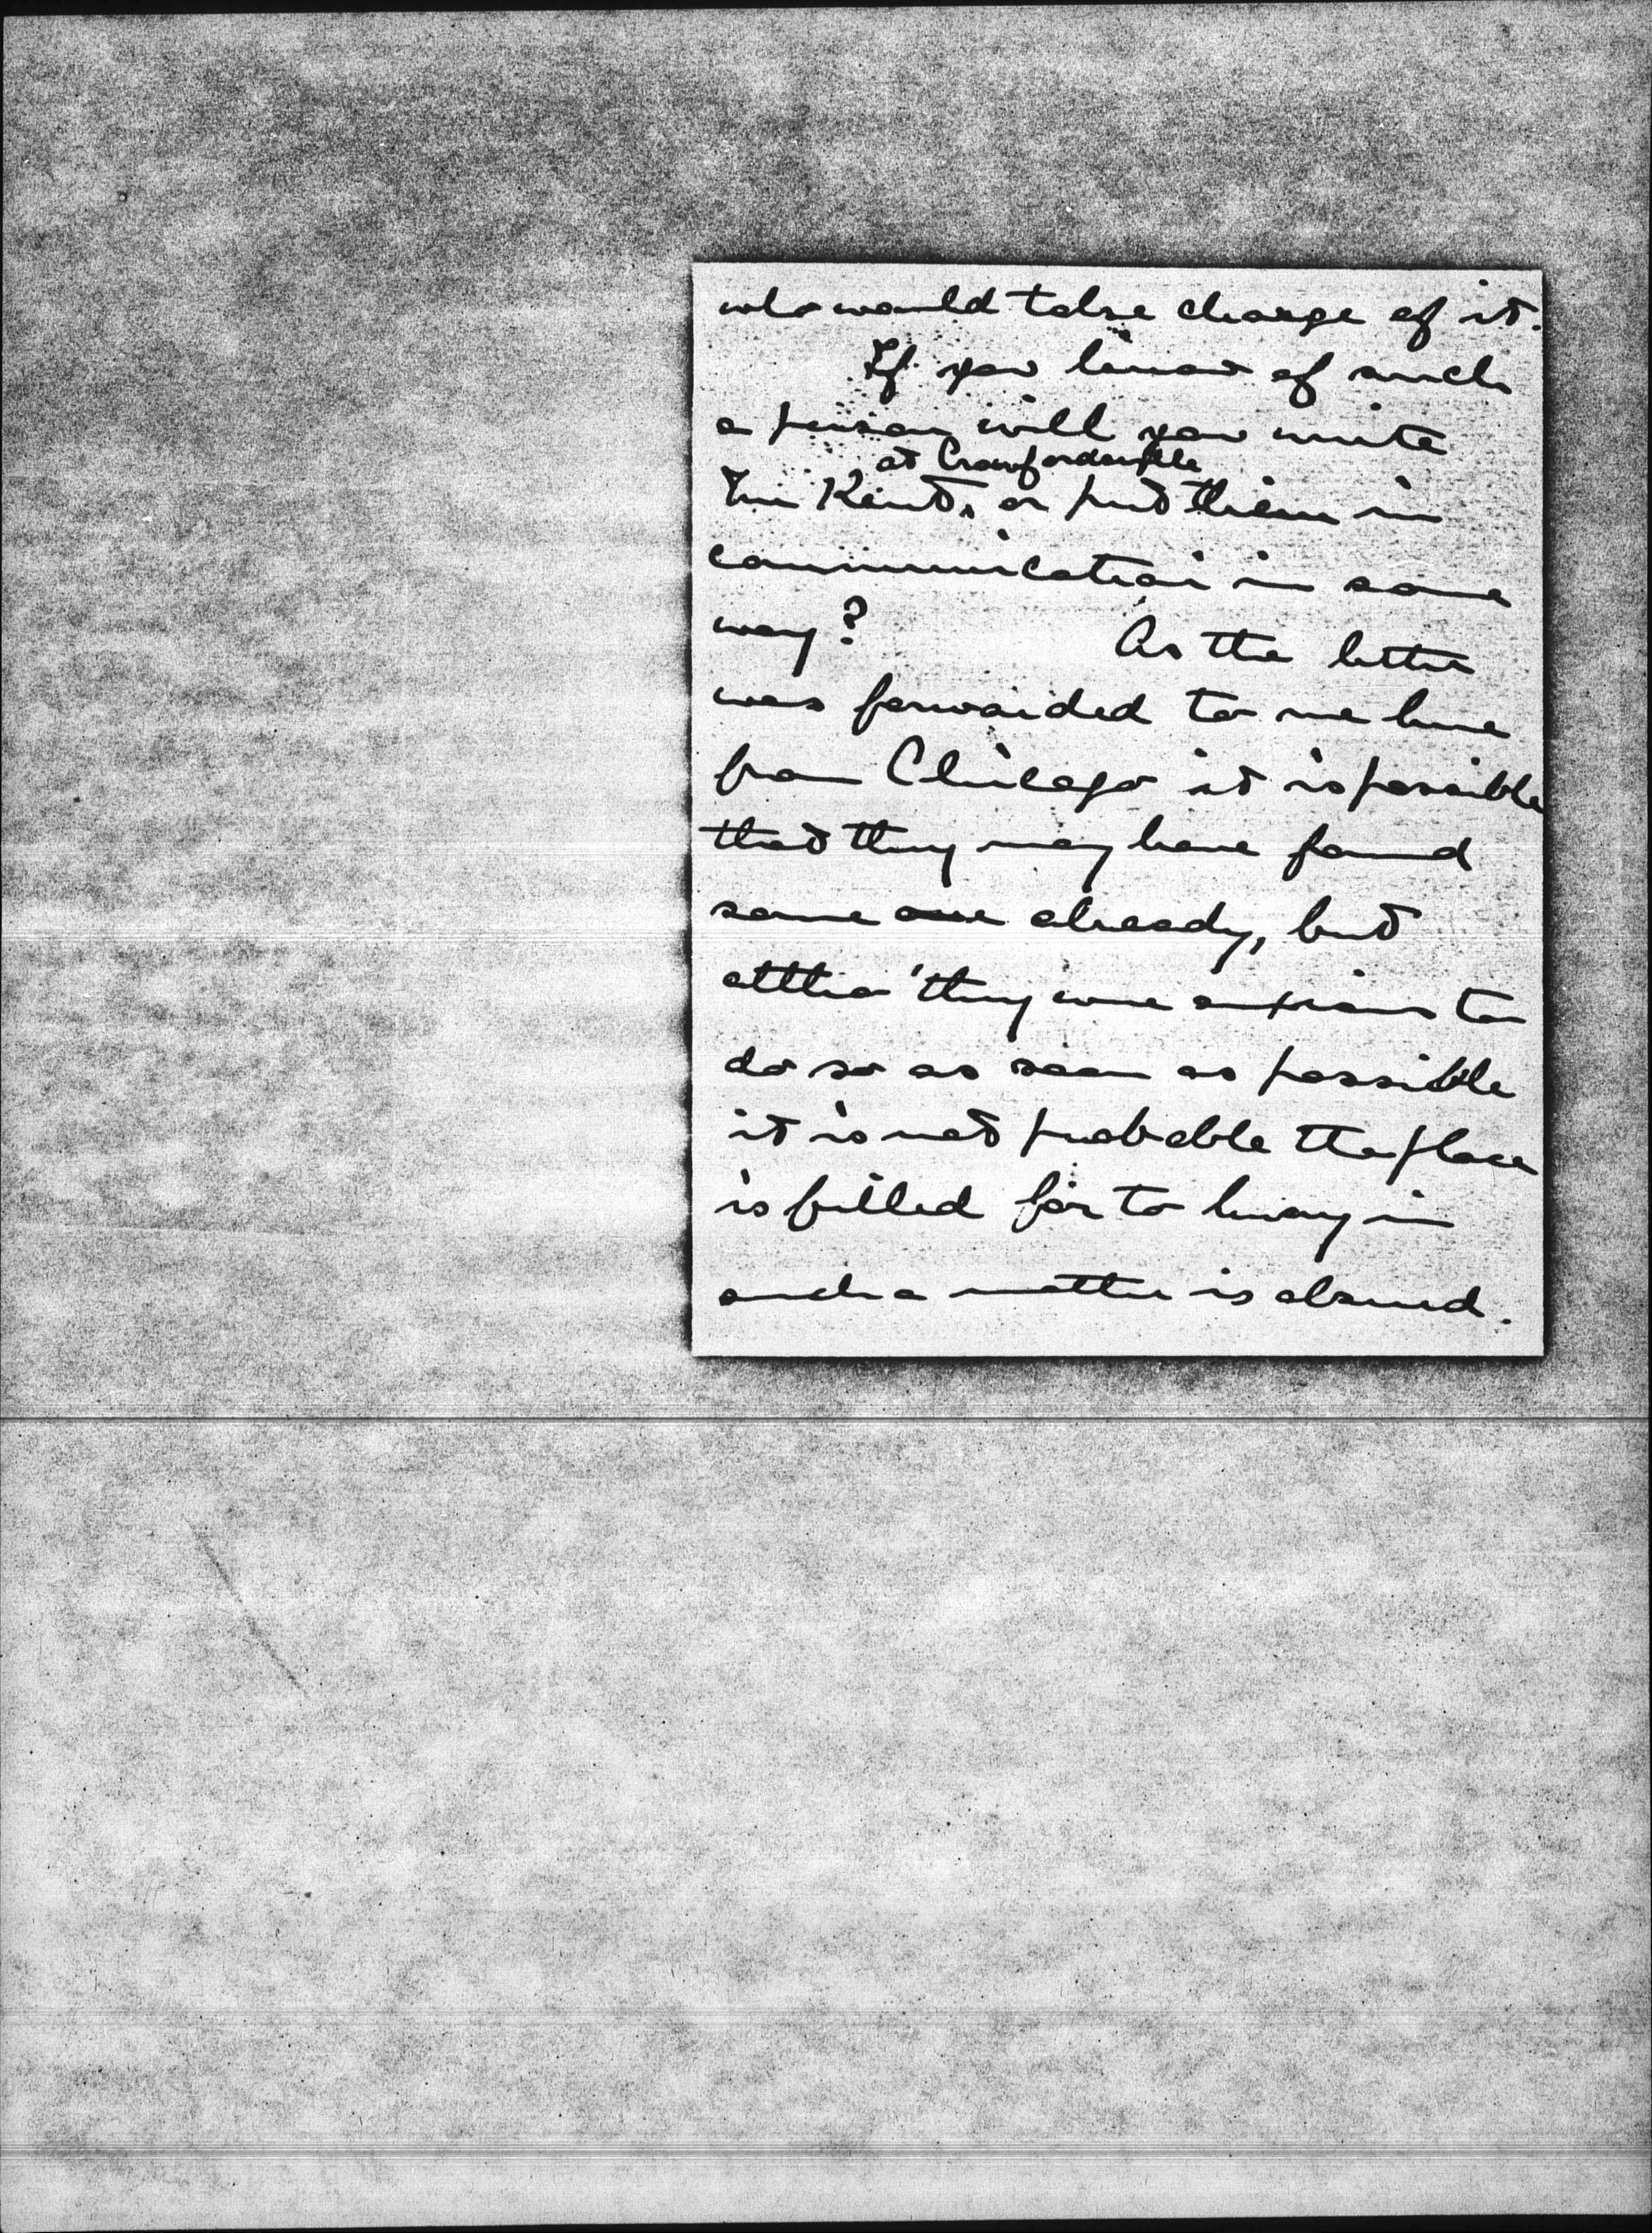 who would take charge of it.
If you know of such
a person will you write
at Crawfordsville
Kent, or put them in
communication in some
way? As the letter
was forwarded to me here
from Chicago it is possible
that they may have found
some one already, but
altho' they were anxious to
do so as soon as possible
it is not probable the place
is filled for to hurry in
such a matter is absurd.